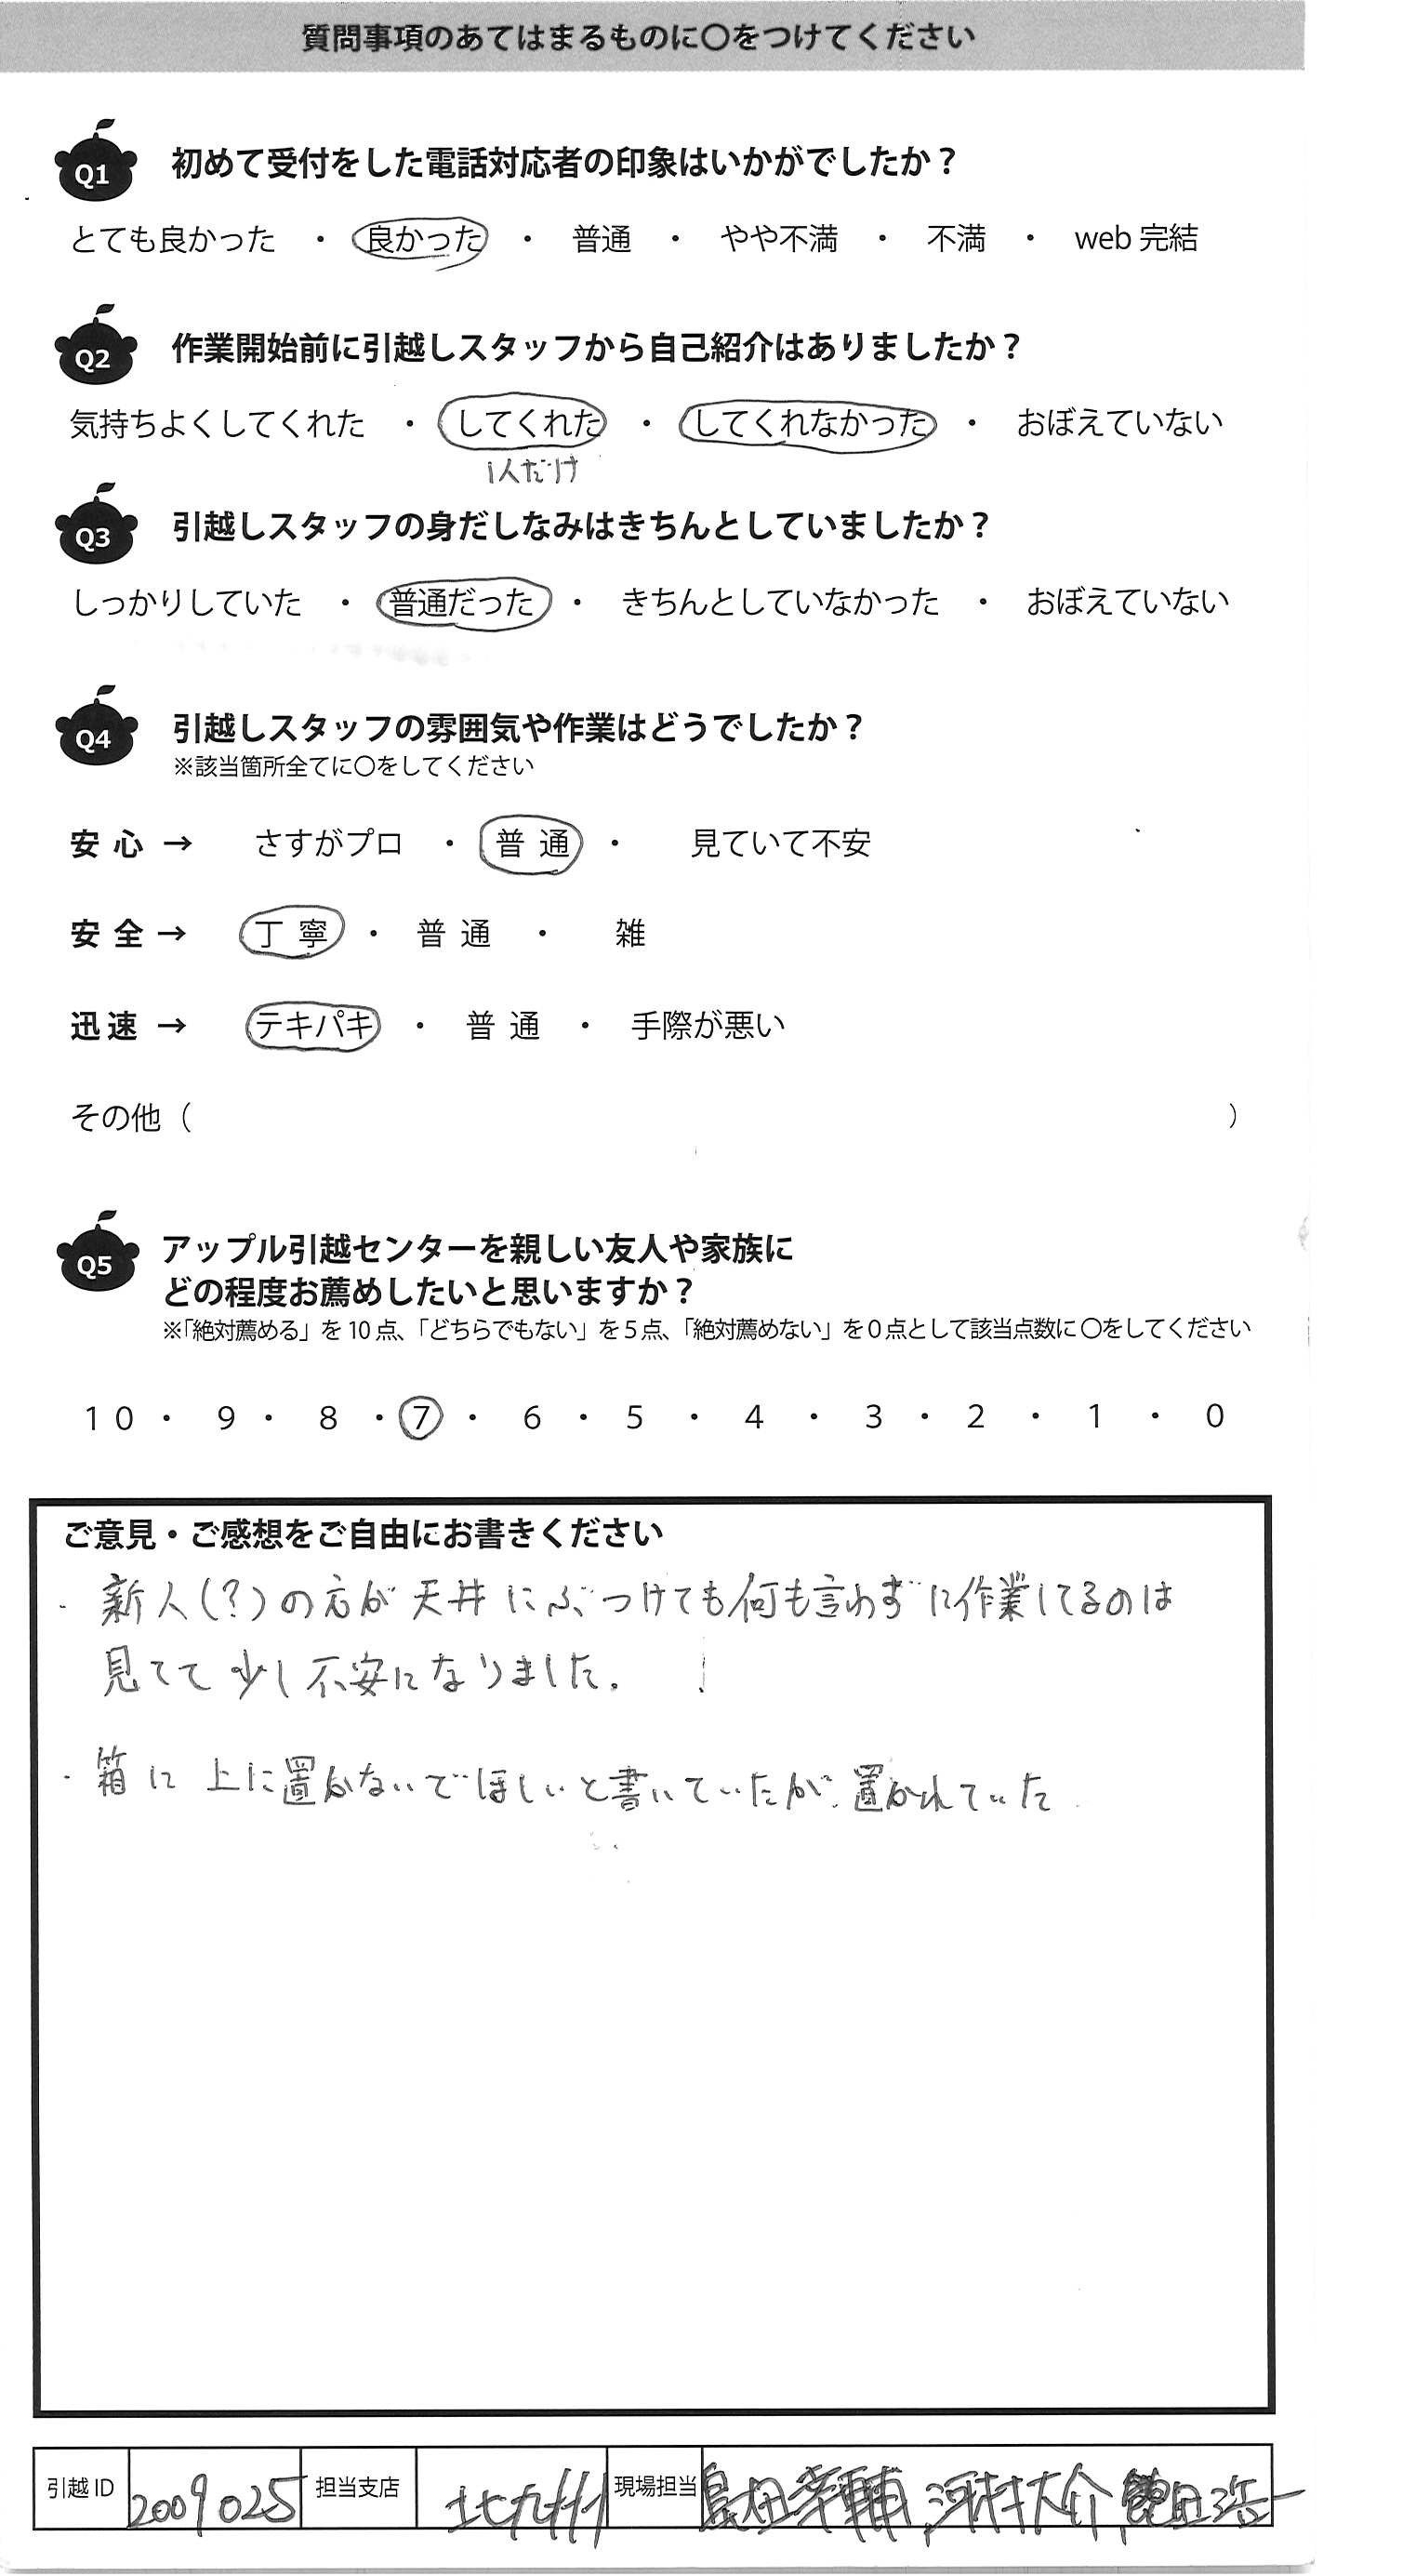 質問事項のあてはまるものに〇をつけてください
Q1 初めて受付をした電話対応者の印象はいかがでしたか？
とても良かった ・ 良かった ・ 普通 ・ やや不満 ・ 不満 ・ web 完結
Q2 作業開始前に引越しスタッフから自己紹介はありましたか？
気持ちよくしてくれた ・ してくれた ・ してくれなかった ・ おぼえていない
1人だけ
Q3 引越しスタッフの身だしなみはきちんとしていましたか？
しっかりしていた ・ 普通だった ・ きちんとしていなかった ・ おぼえていない
Q4 引越しスタッフの雰囲気や作業はどうでしたか？
※該当箇所全てに〇をしてください
安心 → さすがプロ ・ 普通 ・ 見ていて不安
安全 → 丁寧 ・ 普通 ・ 雑
迅速 → テキパキ ・ 普通 ・ 手際が悪い
その他（ ）
Q5 アップル引越センターを親しい友人や家族に
どの程度お薦めしたいと思いますか？
※「絶対薦める」を10点、「どちらでもない」を5点、「絶対薦めない」を0点として該当点数に〇をしてください
10 ・ 9 ・ 8 ・ 7 ・ 6 ・ 5 ・ 4 ・ 3 ・ 2 ・ 1 ・ 0
ご意見・ご感想をご自由にお書きください
・新人(?)の方が天井にぶつけても何も言わずに作業してるのは
見てて少し不安になりました。
・箱に上に置かないでほしいと書いていたが置かれていた
引越ID 2009025 担当支店 北九州 現場担当 島田幸輔,河村大介,